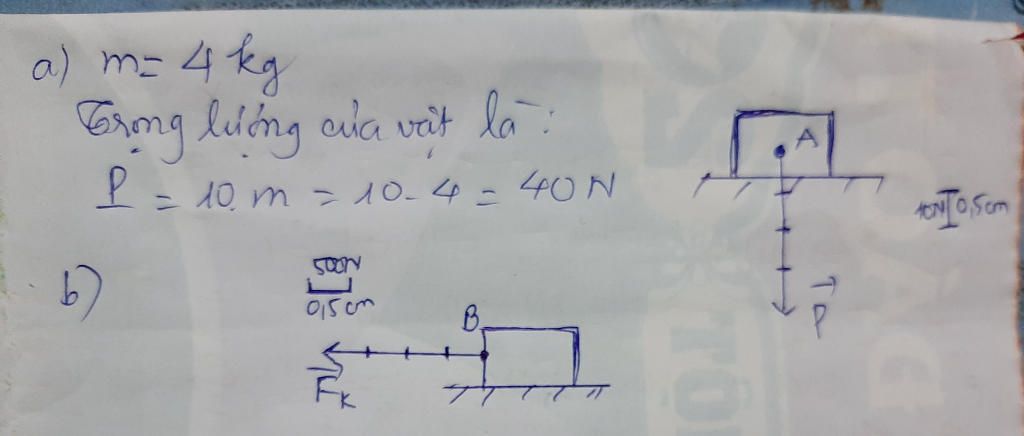 a) m = 4 kg
Trọng lượng của vật là:
P = 10.m = 10.4 = 40N
A
10N 0,5cm
P
b)
500N
0,5cm
B
F_K